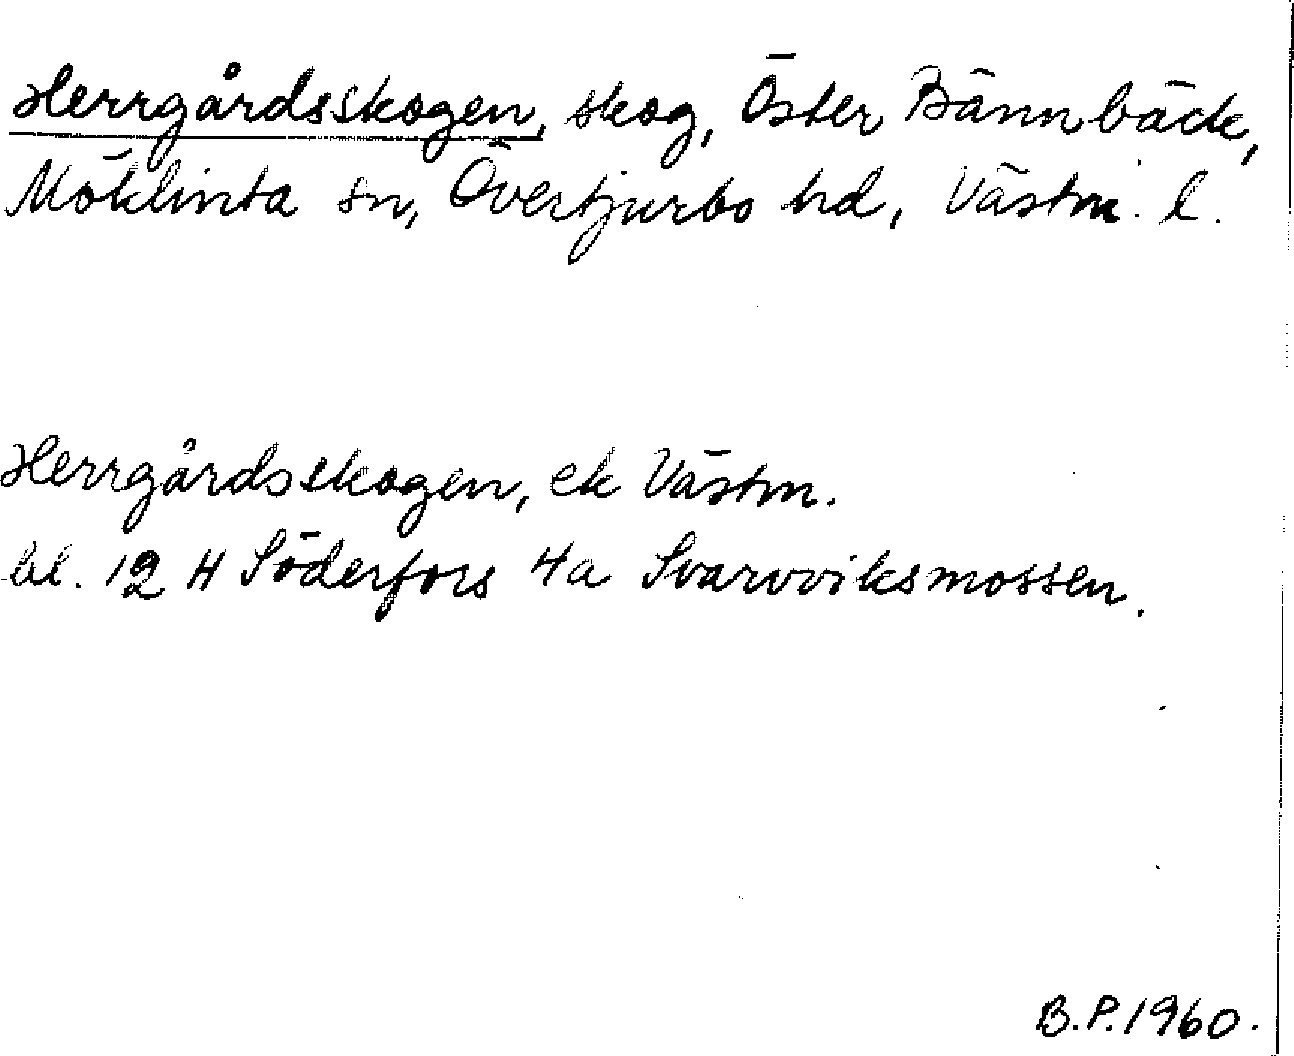 Herrgårdsskogen, skog, Öster Bännbäck,
Möklinta sn, Övertjurbo hd, Västm. l.
Herrgårdsskogen, ek Västm.
bl. 12 H Söderfors 4a Svarvviksmossen.
B.P.1960.